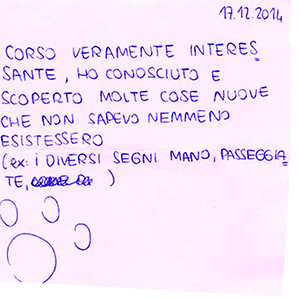 17.12.2014
CORSO VERAMENTE INTERES
SANTE, HO CONOSCIUTO E
SCOPERTO MOLTE COSE NUOVE
CHE NON SAPEVO NEMMENO
ESISTESSERO
(ex: i DIVERSI SEGNI MANO, PASSEGGIA
TE, )